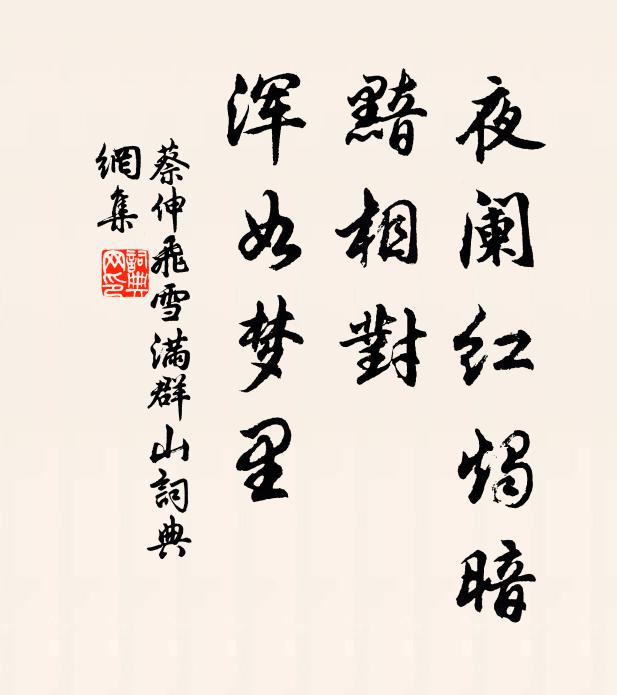 夜阑红烛暗
黯相對
浑如梦里
蔡伸飛雪满群山詞典
網集
詞典网印